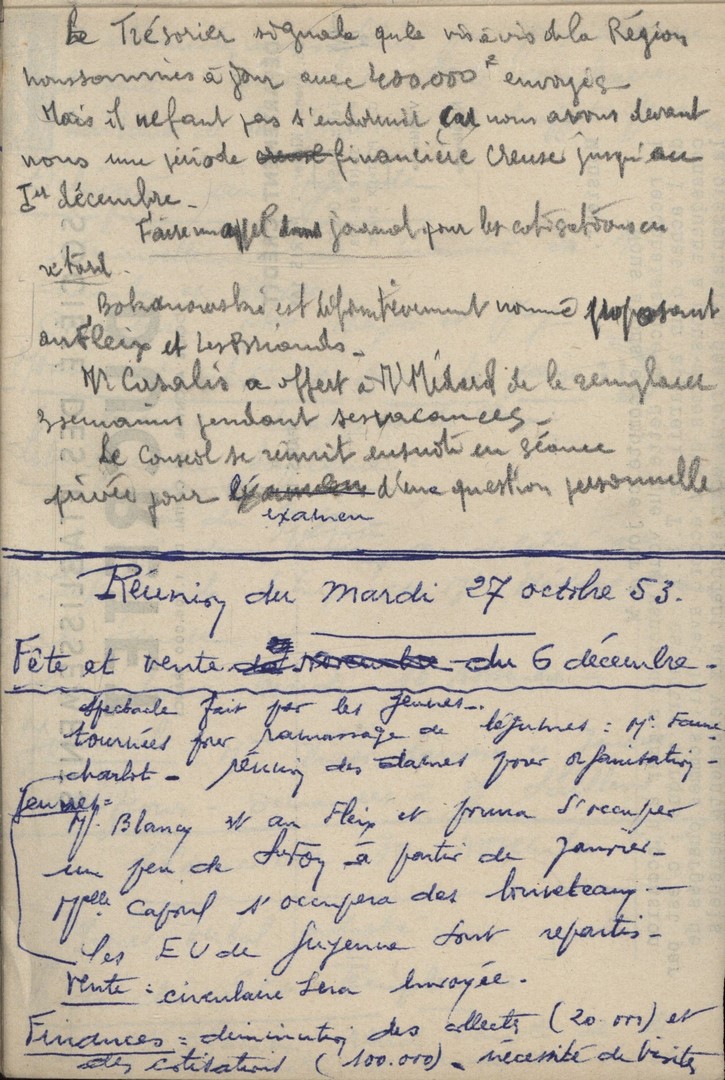 Le Trésorier signale que vis à vis de la Région
nous sommes à jour avec 400.000 F envoyés
Mais il ne faut pas s'endormir car nous avons devant
nous une période creuse financière creuse jusqu'au
Ier décembre.
Faire un appel dans journal pour les cotisations en
retard.
Bokanowski est définitivement nommé proposant
au Fleix et Les Briands.
Mr Casalis a offert à Mr Médard de le remplacer
3 semaines pendant ses vacances.
Le Conseil se réunit ensuite en séance
privée pour examen d'une question personnelle
Réunion du mardi 27 octobre 53.
Fête et vente novembre du 6 décembre.
spectacle fait par les jeunes.
tournées pour ramassage de légumes : Mr Faure
charlot - réunion des dames pour organisation -
Jeunes =
Mr Blancy est au Fleix et pourra s'occuper
un peu de Ste Foy à partir de Janvier -
Mlle Capoul s'occupera des louveteaux. -
les EU de Guyenne sont repartis -
Vente : circulaire sera envoyée.
Finances = diminution des collectes (20.000) et
des cotisations (100.000). nécessité de visites